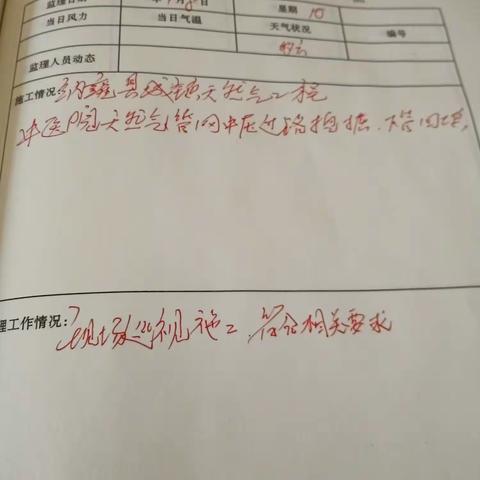 监理日期 年 月 8 日 星期 10
当日风力 当日气温 天气状况 编号
多云
监理人员动态
施工情况: 纳雍县城镇天然气工程
中医院天然气管网中压过路挖掘、下管回填,
理工作情况: 现场巡视施工,符合相关要求